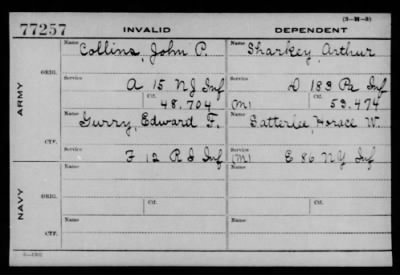 (3-M-3)
77257 INVALID DEPENDENT
ARMY
ORIG.
Name Collins, John P. Name Sharkey Arthur
Service A 15 NJ Inf Service D 183 Pa Inf
Ctf. 48,704 (M) Ctf. 53.474
CTF.
Name Gurry, Edward F. Name Satterlee, Horace W.
Service F 12 R I Inf Service (M) E 86 N Y Inf
NAVY
ORIG.
Name Name
Service Ctf. Service Ctf.
CTF.
Name Name